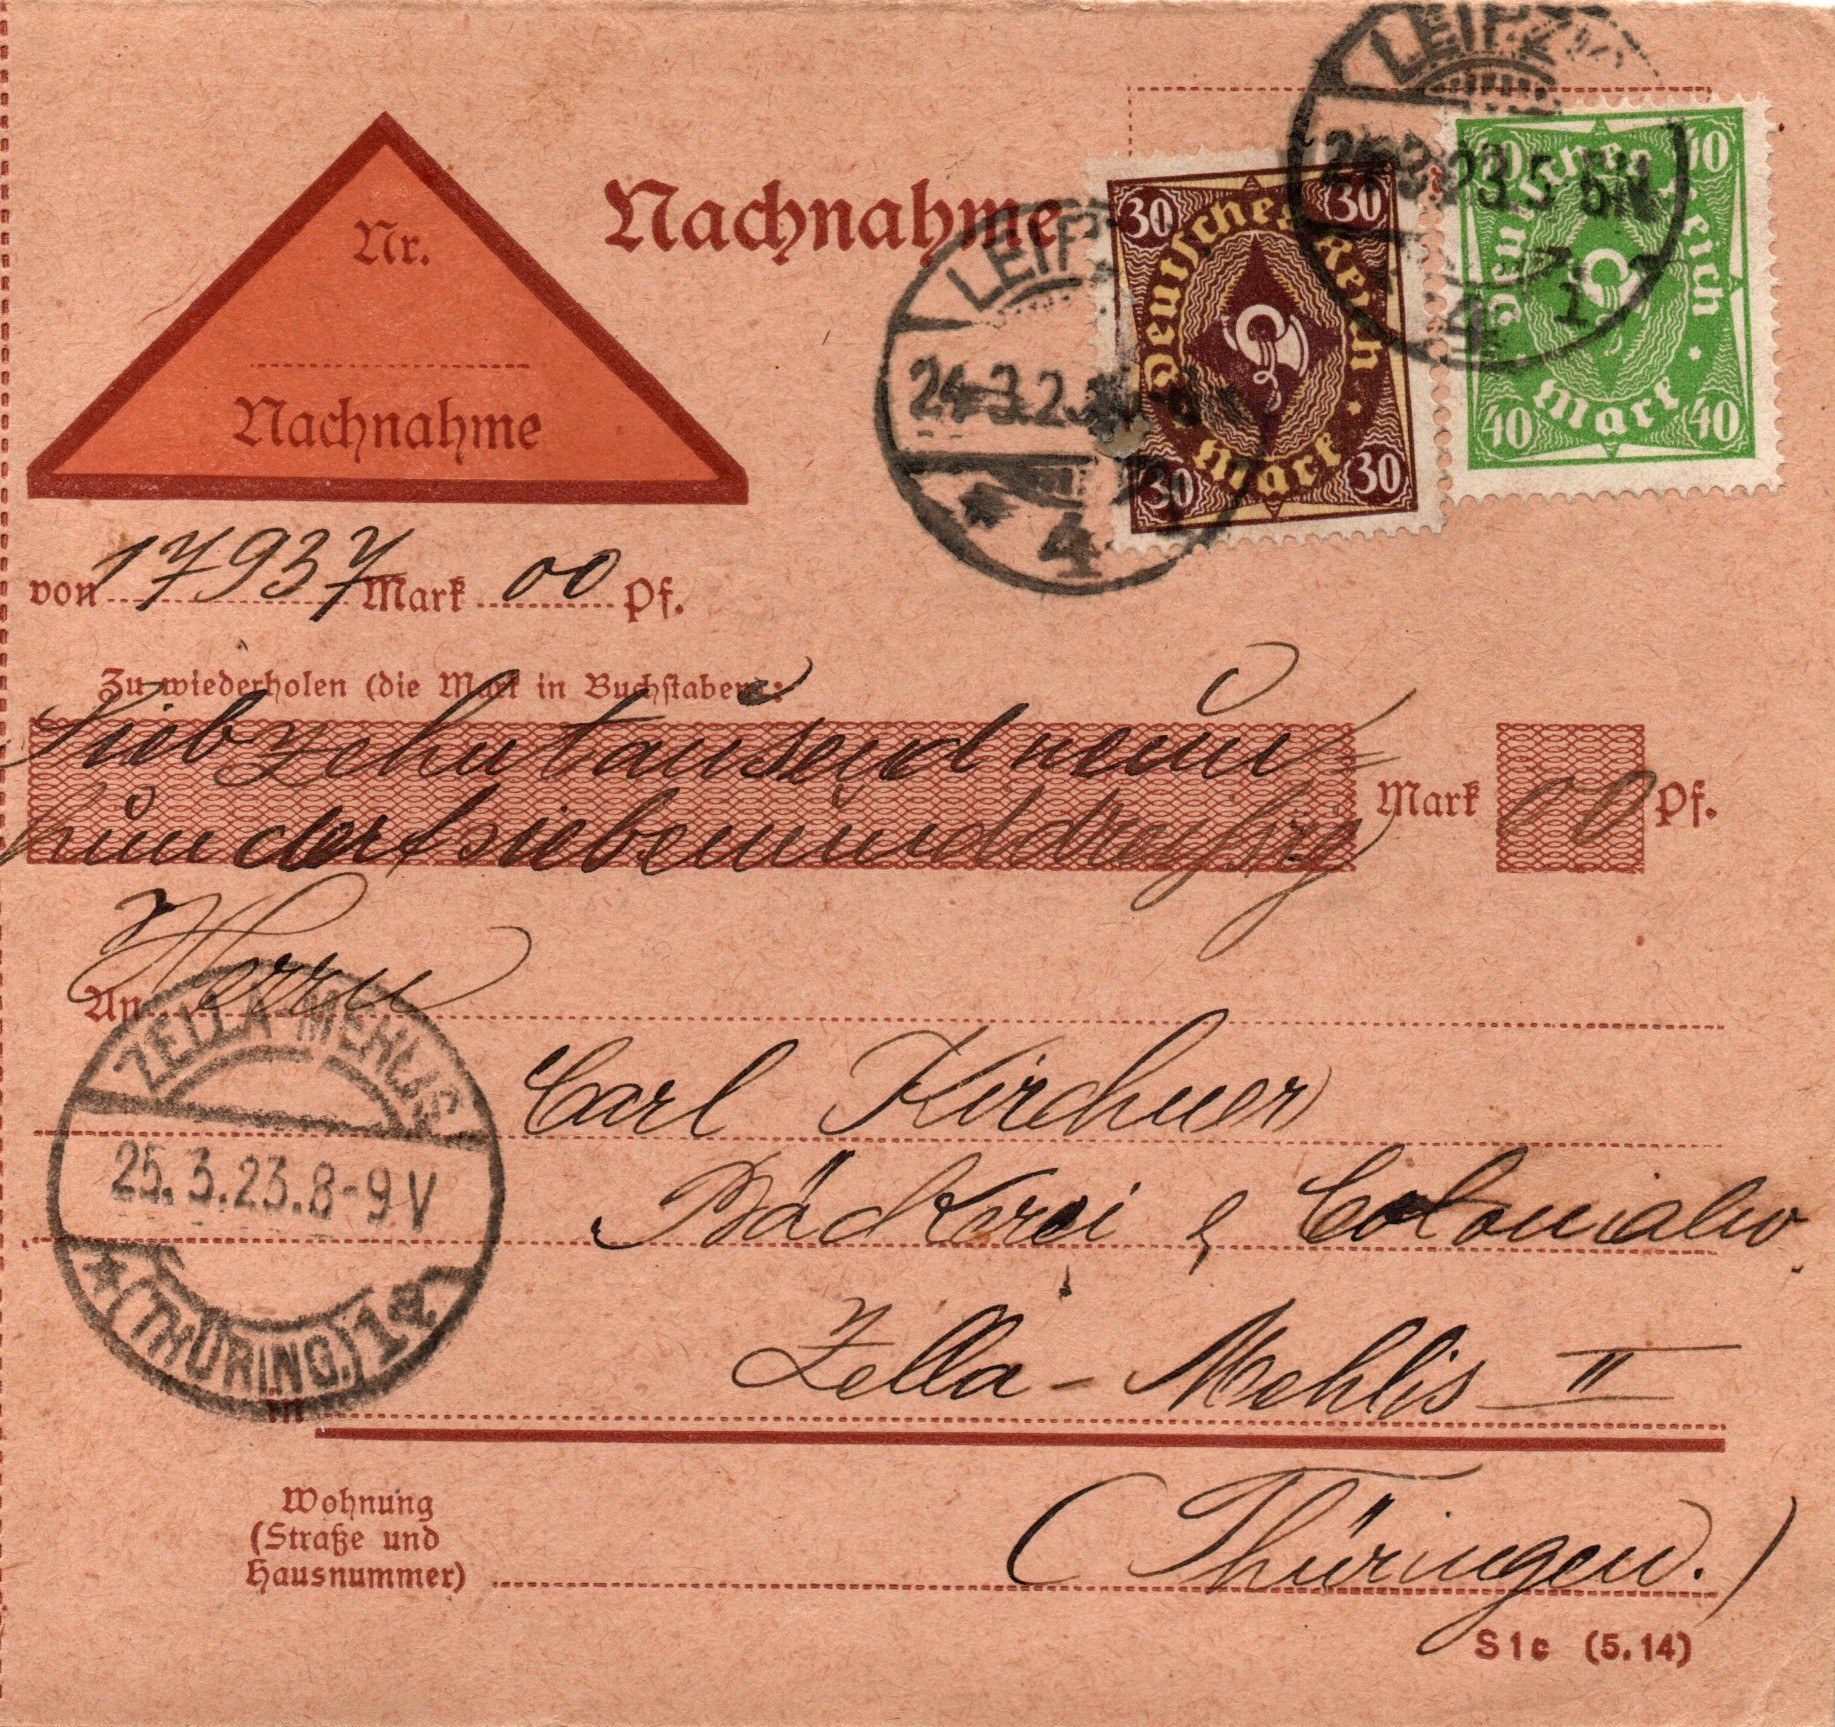 LEIPZIG
24.3.23.5-6N
4
LEIPZIG
24.3.23.5-6N
4
Nr.
Nachnahme
Nachnahme
30 30
Deutsches Reich
Mark
30 30
40 40
Deutsches Reich
Mark
40 40
von 17937 Mark 00 Pf.
Zu wiederholen (die Mark in Buchstaben):
Siebzehntausendneun=
hundertsiebenunddreißig Mark 00 Pf.
An Herrn
Carl Kirchner
Bäckerei & Colonialw.
in Zella-Mehlis II
Wohnung
(Straße und
Hausnummer)
(Thüringen.)
ZELLA-MEHLIS
25.3.23.8-9V
(THÜRING.) 1a
S1c (5.14)